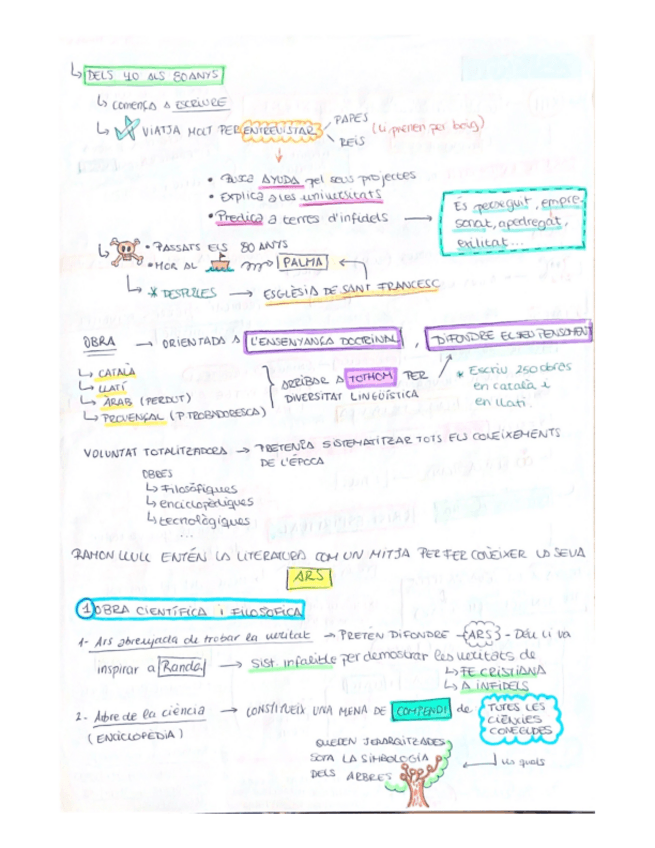 ↳ DELS 40 ALS 80 ANYS
↳ COMENÇA A ESCRIURE
↳ VIATJA MOLT PER ENTREVISTAR PAPES (li prenen per boig)
REIS
• Busca AYUDA pel seus projectes
• Explica a les universitats
• Predica a terres d'infidels →
És perseguit, empre-
sonat, apedregat,
exiliat...
↳ • PASSATS ELS 80 ANYS
• MOR AL PALMA
↳ * DESPULLES → ESGLÈSIA DE SANT FRANCESC
OBRA → ORIENTADA A L'ENSENYANÇA DOCTRINAL, DIFONDRE EL SEU PENSAMENT
↳ CATALÀ
↳ LLATÍ
↳ ÀRAB (PERDUT)
↳ PROVENÇAL (P. TROBADORESCA)
ARRIBAR A TOTHOM PER
DIVERSITAT LINGÜÍSTICA
* Escriu 250 obres
en català i
en llatí.
VOLUNTAT TOTALITZADORA → PRETENIA SISTEMATITZAR TOTS ELS CONEIXEMENTS
DE L'ÈPOCA
OBRES
↳ Filosòfiques
↳ enciclopèdiques
↳ tecnològiques
...
RAMON LLULL ENTÉN LA LITERATURA COM UN MITJÀ PER FER CONÈIXER LA SEVA
ARS
1 OBRA CIENTÍFICA i FILOSÒFICA
1- Ars abreujada de trobar la veritat → PRETÉN DIFONDRE - ARS - Déu li va
inspirar a Randa → Sist infalible per demostrar les veritats de
↳ FE CRISTIANA
↳ A INFIDELS
2- Abre de la ciència → CONSTITUEIX UNA MENA DE COMPENDI de TOTES LES
CIÈNCIES
CONEGUDES
(ENCICLOPÈDIA)
QUEDEN JERARQUITZADES
SOTA LA SIMBOLOGIA
DELS ARBRES
← les quals